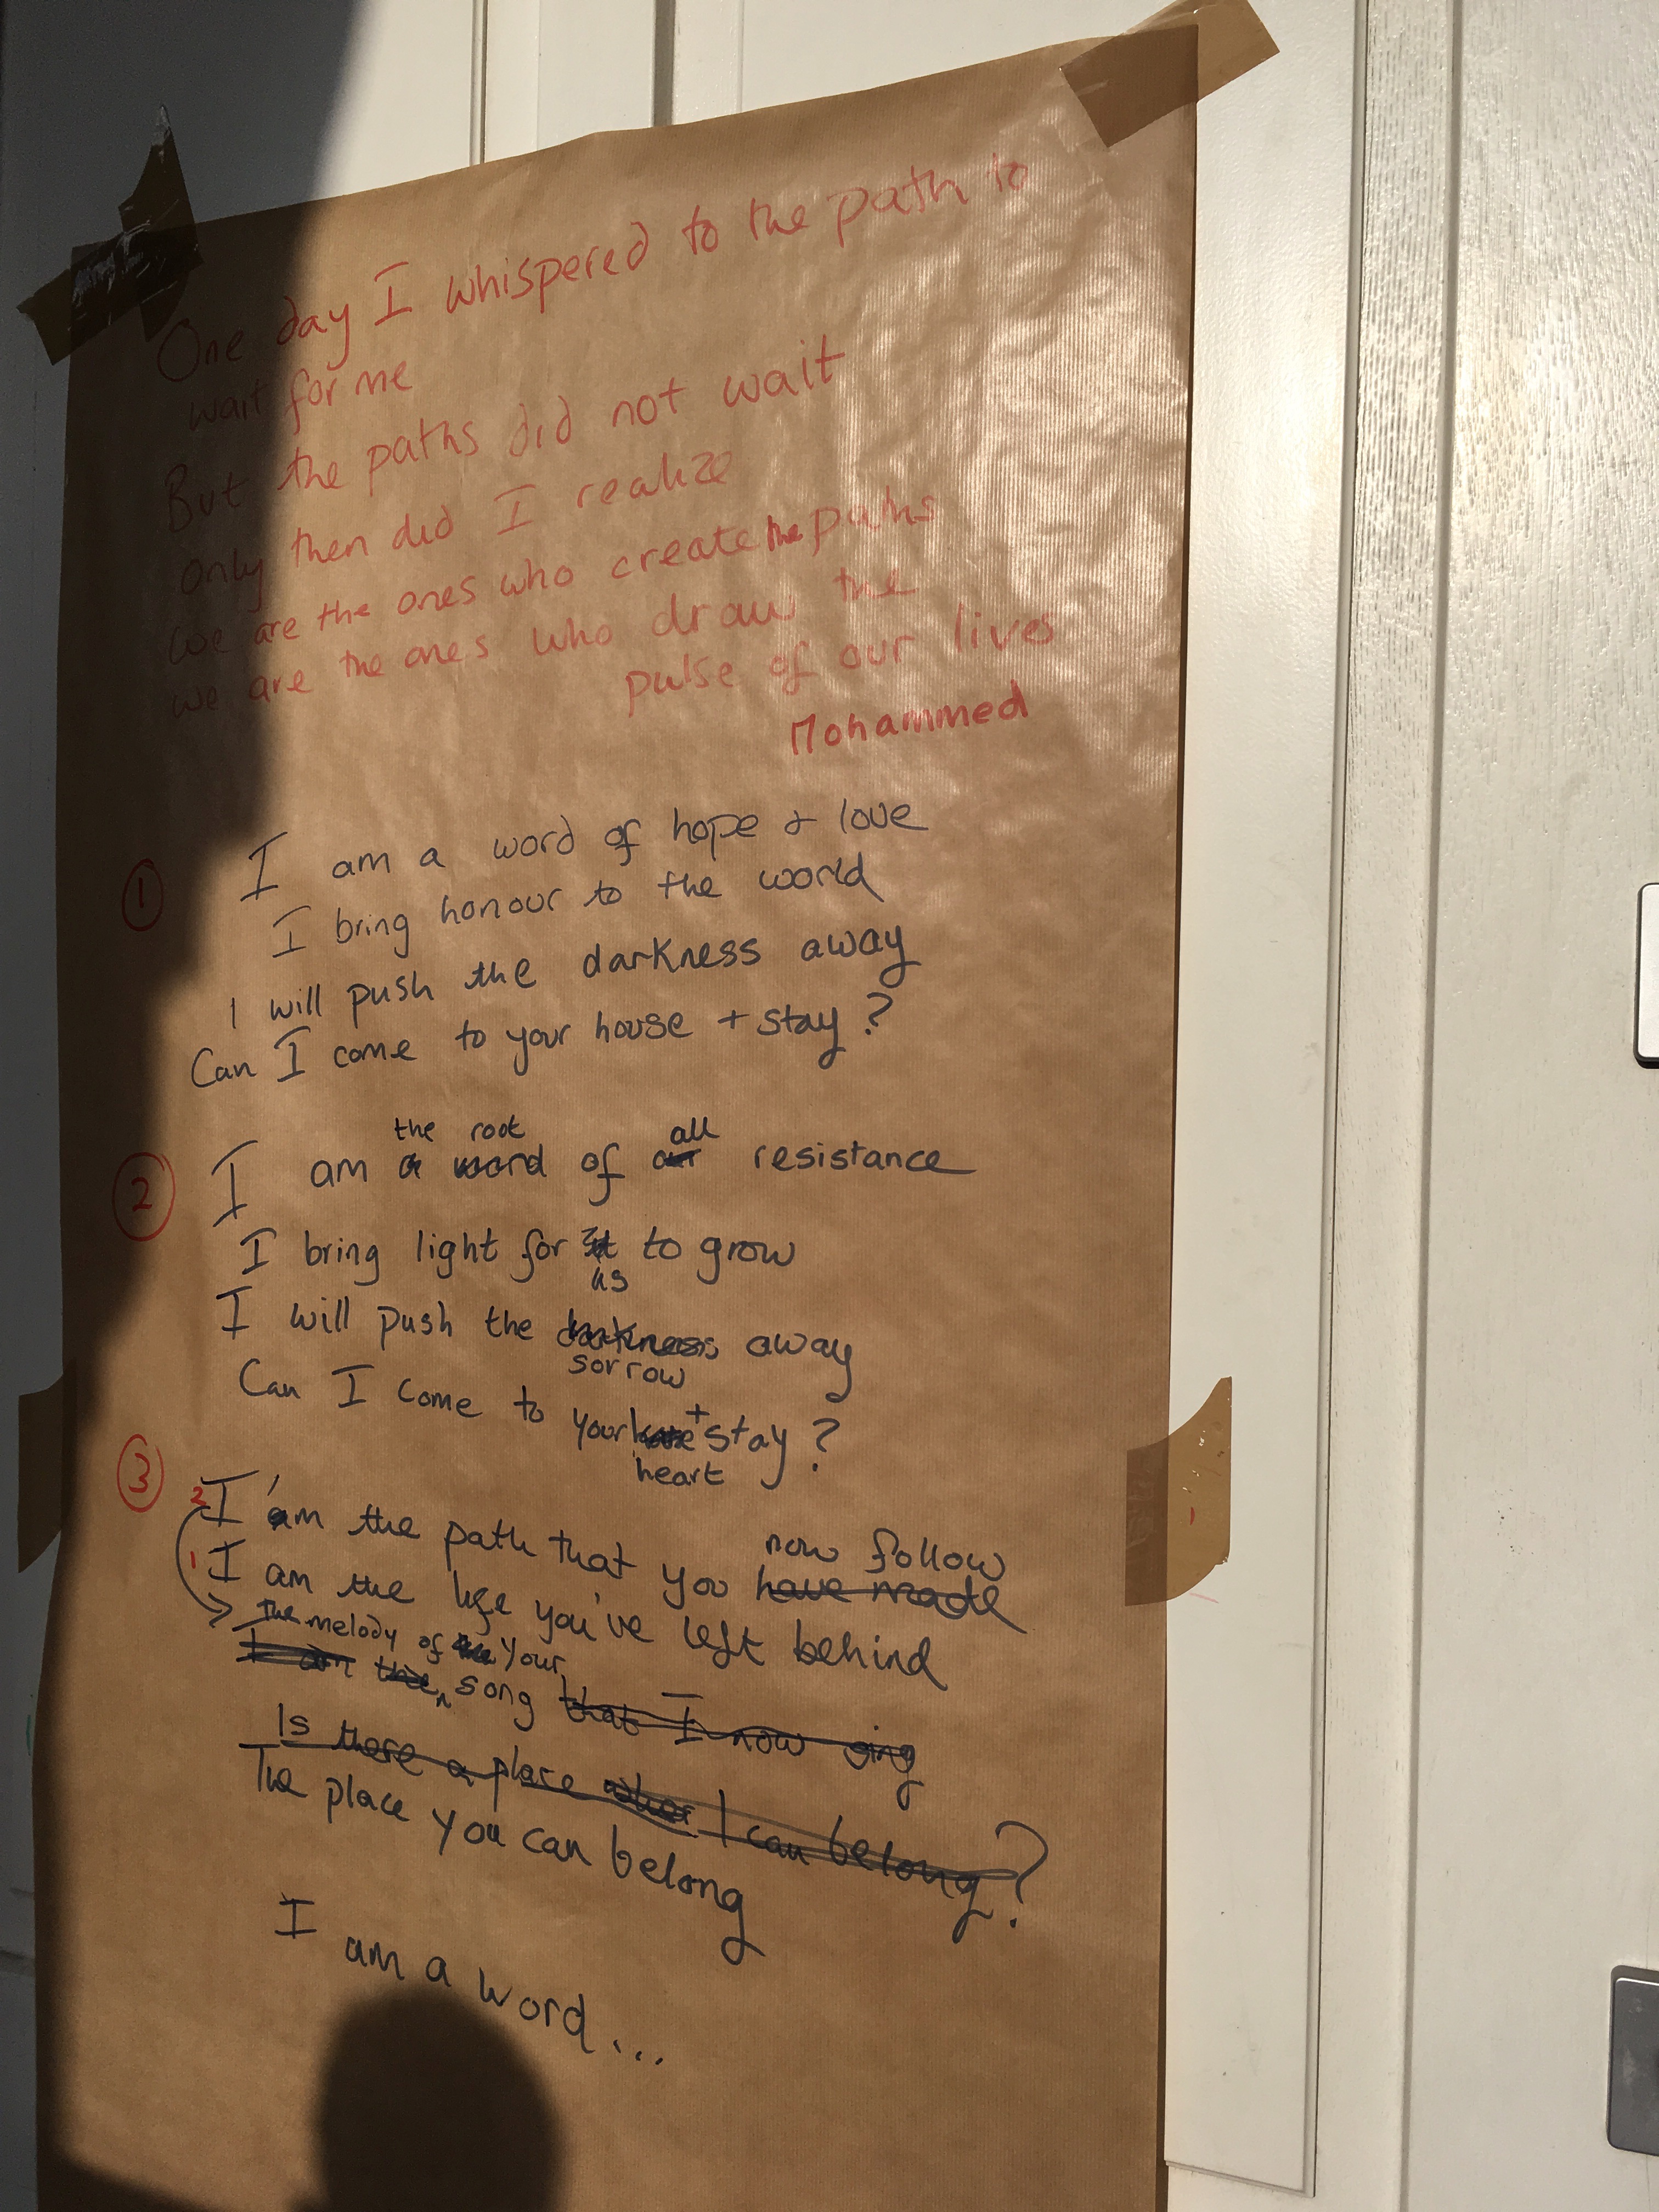 One day I whispered to the path to
wait for me
But the paths did not wait
only then did I realize
we are the ones who create the paths
we are the ones who draw the
pulse of our lives
Mohammed
1
I am a word of hope + love
I bring honour to the world
I will push the darkness away
Can I come to your house + stay?
the root all
2
I am a word of our resistance
I bring light for it to grow
us
I will push the darkness away
sorrow
Can I come to your + stay?
heart
3
now follow
2 I am the path that you have made
1 I am the life you've left behind
the melody of your
I am the song that I now sing
Is there a place where I can belong?
The place you can belong
I am a word...